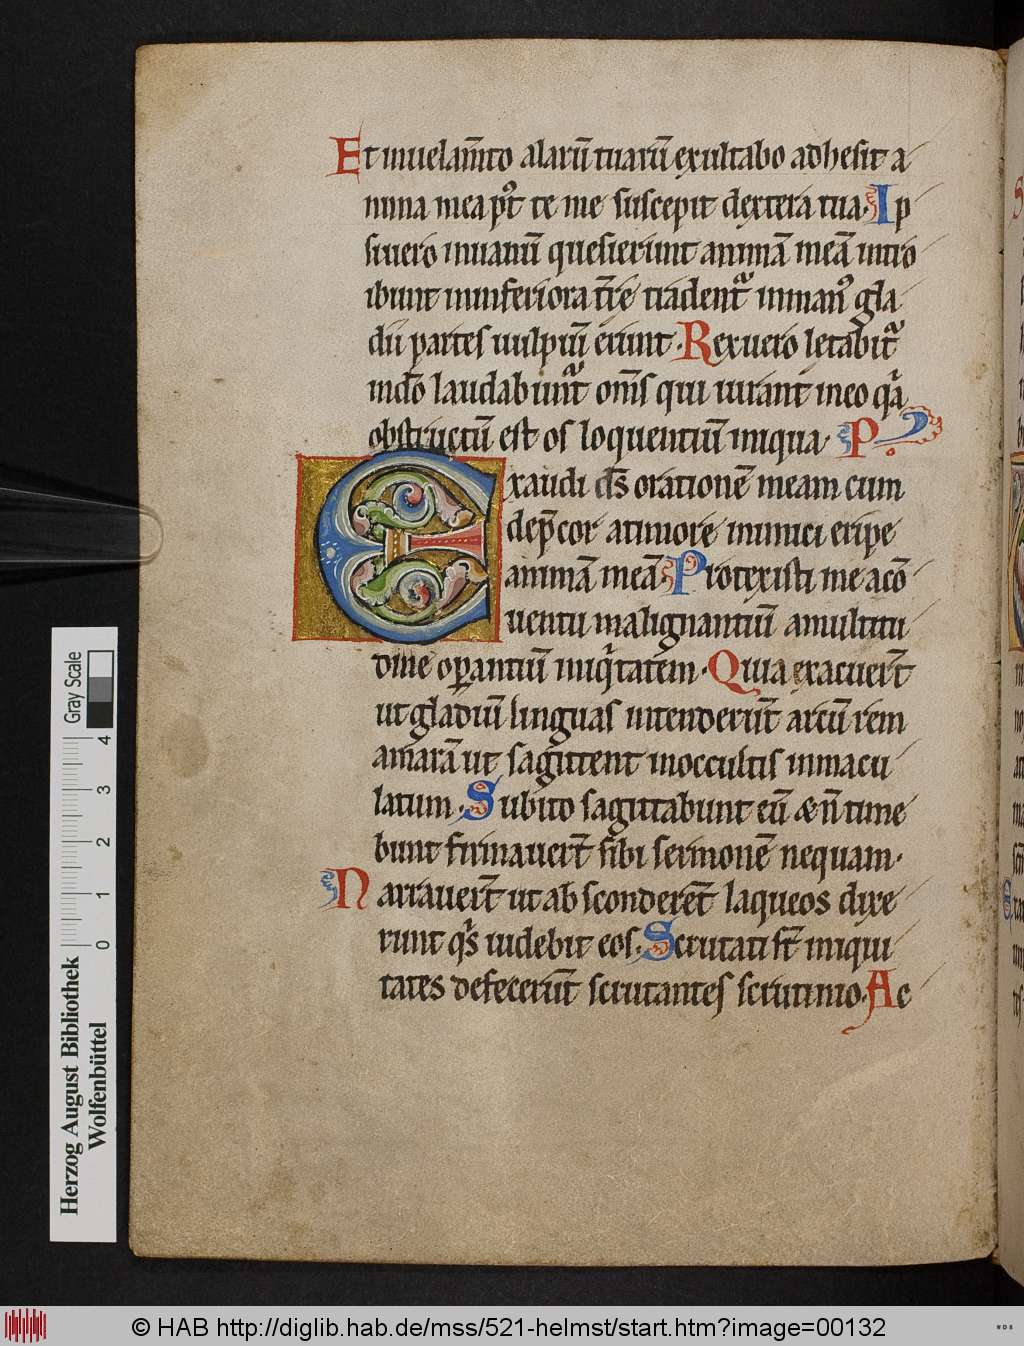 Et inuelam̄to alarū tuarū exultabo adhesit a
nima mea p᷒t te me suscepit dextera tua. Ip
siuero inuanū quesierunt animā meā intro
ibunt ininferiora t̄re tradent᷑ inman᷒ gla
dii partes uulpiū erunt. Rexuero letabit᷑
indo̅ laudabunt᷑ om̅s qui iurant ineo qᷓa
obstructū est os loquentiū iniqua. P
Exaudi ds̅ orationē meam cum
dep̄cor atimore inimici eripe
animā meā. Protexisti me acō
uentu malignantiū amultitu
dine oꝑantiū iniqͥtatem. Quia exacuer̄t
ut gladiū linguas intenderūt arcū rem
amarā ut sagittent inoccultis inmacu
latum. Subito sagittabunt eū & n̄ time
bunt firmauer̄t sibi sermonē nequam.
Narrauer̄t ut absconderēt laqueos dixe
runt qͥs uidebit eos. Scrutati st̄ iniqui
tates defecerūt scrutantes scrutinio. Ac
Gray Scale
4 3 2 1 0
Herzog August Bibliothek
Wolfenbüttel
© HAB http://diglib.hab.de/mss/521-helmst/start.htm?image=00132